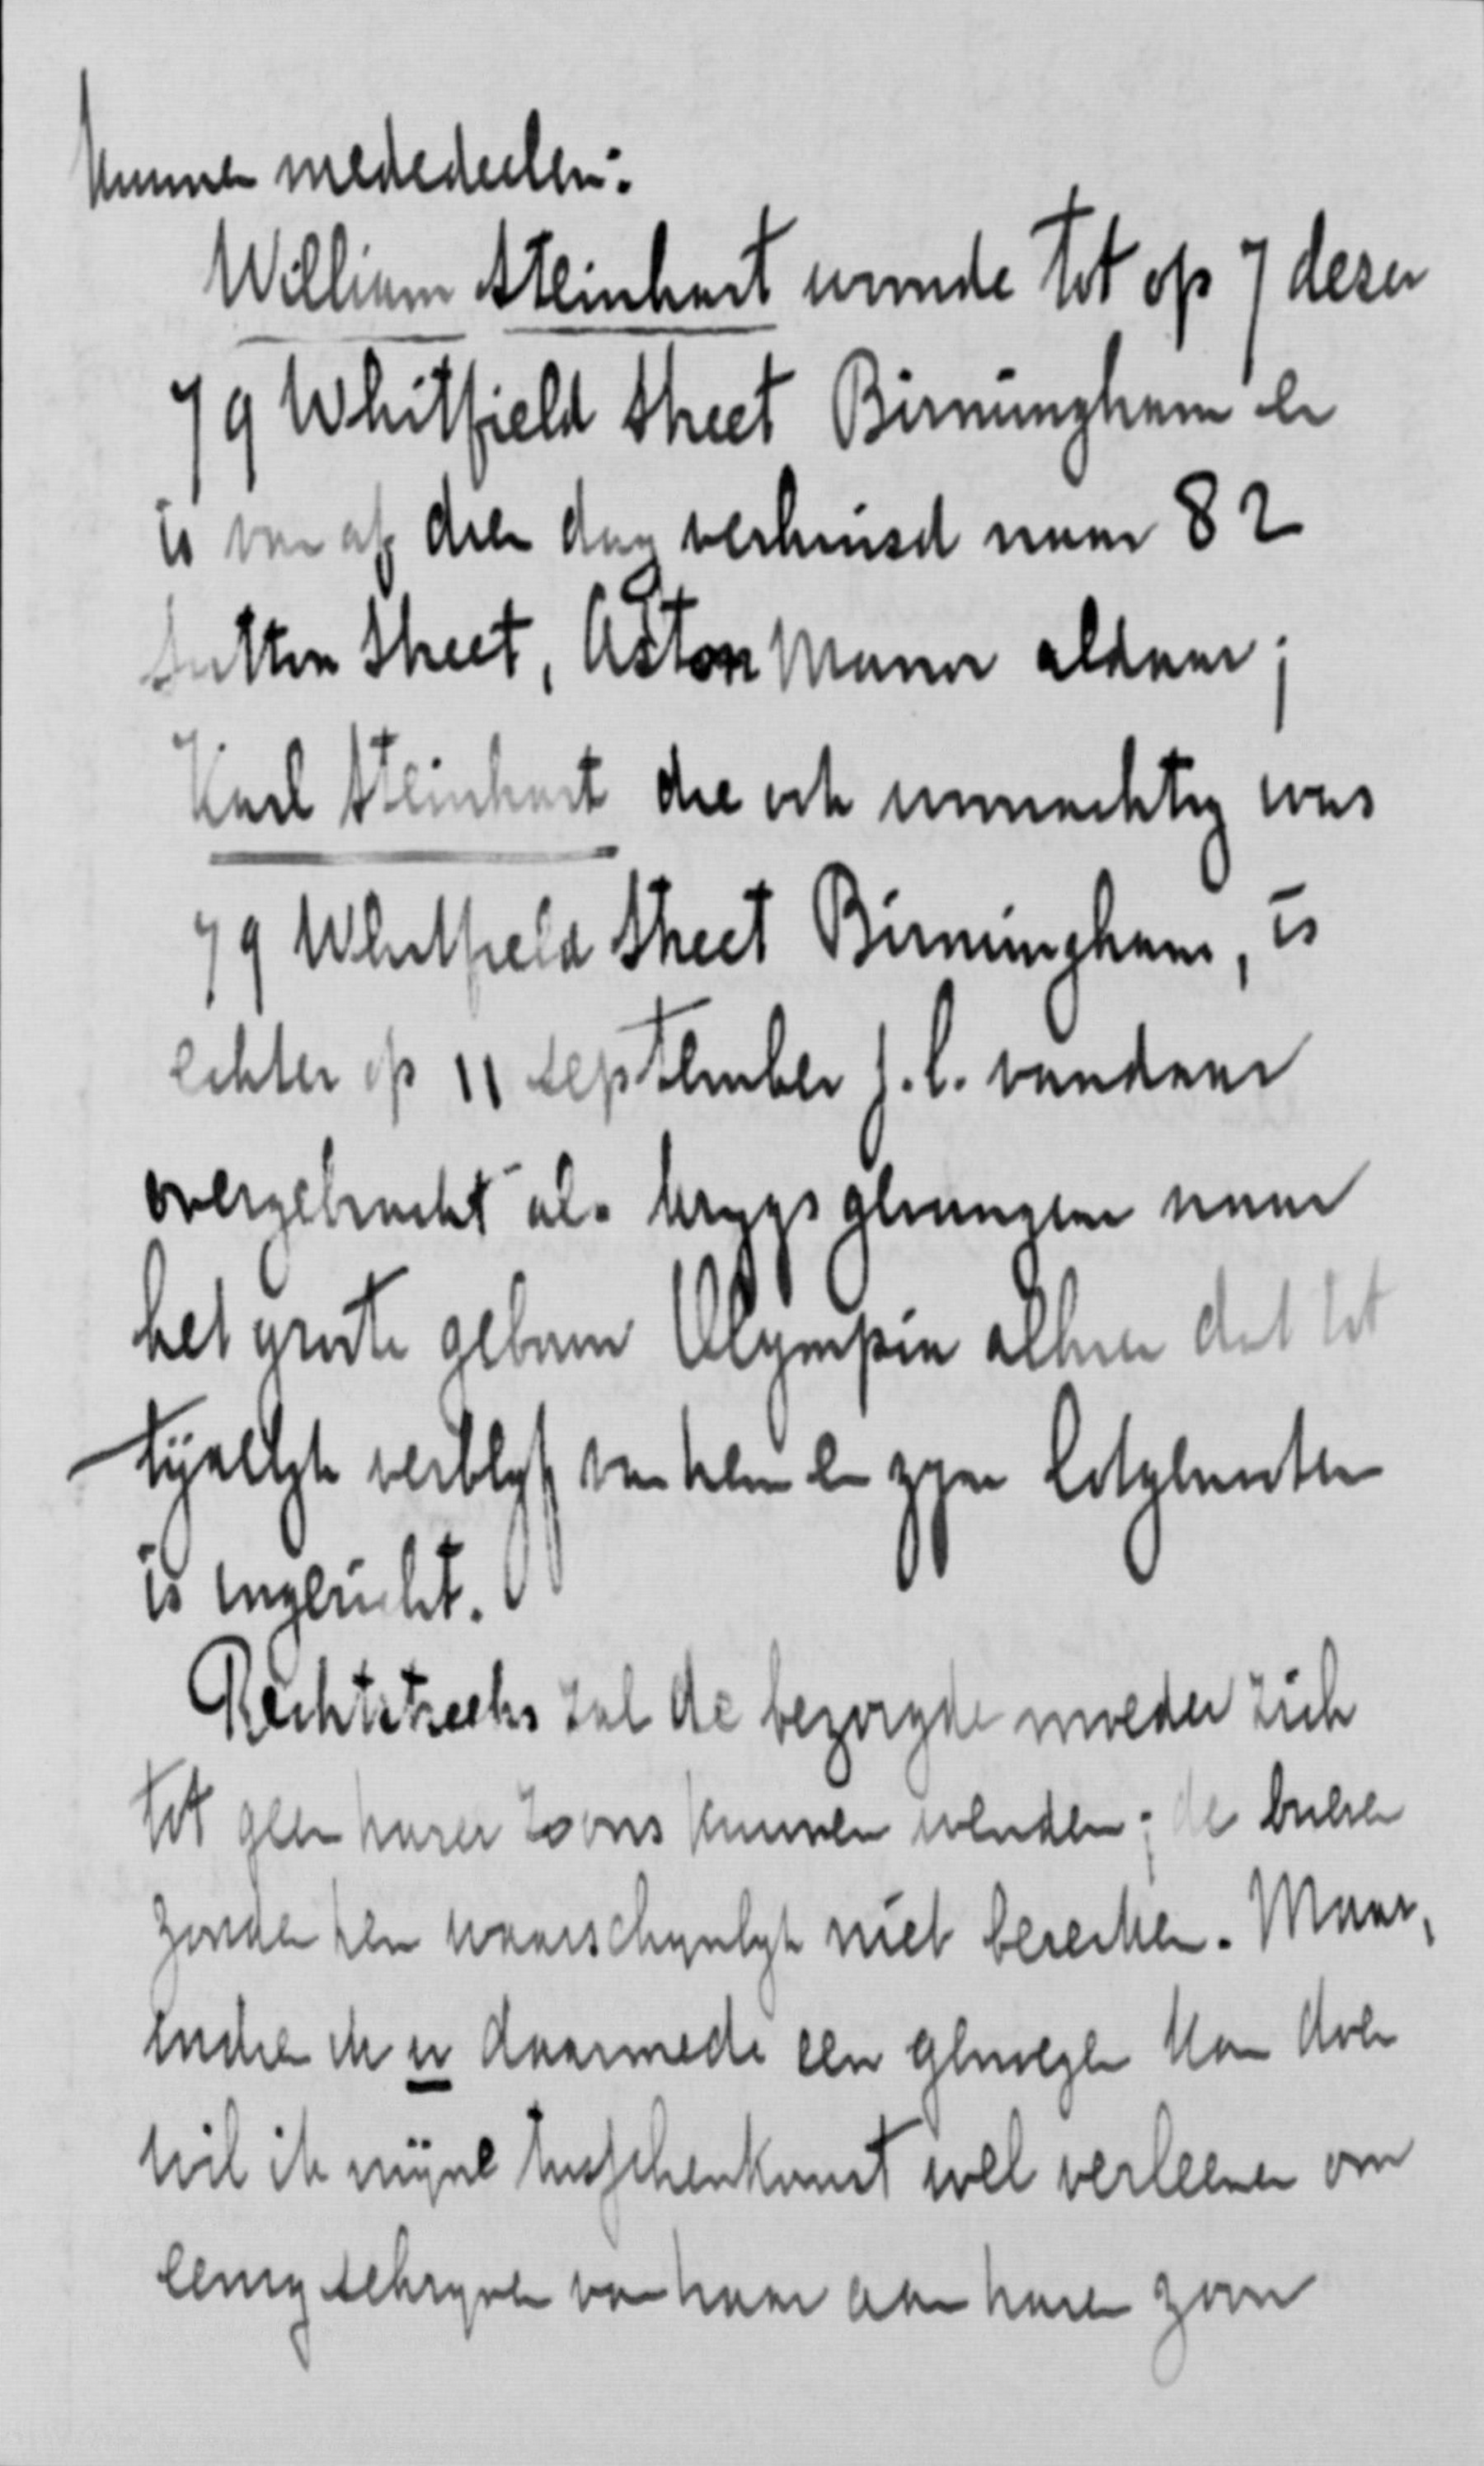 kunnen mededeelen:
William Steinhart woonde tot op 7 dezer
79 Whitfield Street Birmingham en
is van af dien dag verhuisd naar 82
Sutton Street, Aston Manor aldaar;
Karl Steinhart die ook woonachtig was
79 Whitfield Street Birmingham, is
echter op 11 September j.l. vandaar
overgebracht als krygsgevangene naar
het groote gebouw Olympia alhier dat tot
tijdelyk verblyf van hem en zyne lotgenooten
is ingericht.
Rechtstreeks zal de bezorgde moeder zich
tot geen harer zoons kunnen wenden; de brieven
zouden hen waarschynlyk niet bereiken. Maar,
indien ik u daarmede een genoegen kan doen
wil ik mijne tusschenkomst wel verleenen om
eenig schryven van haar aan haren zoon